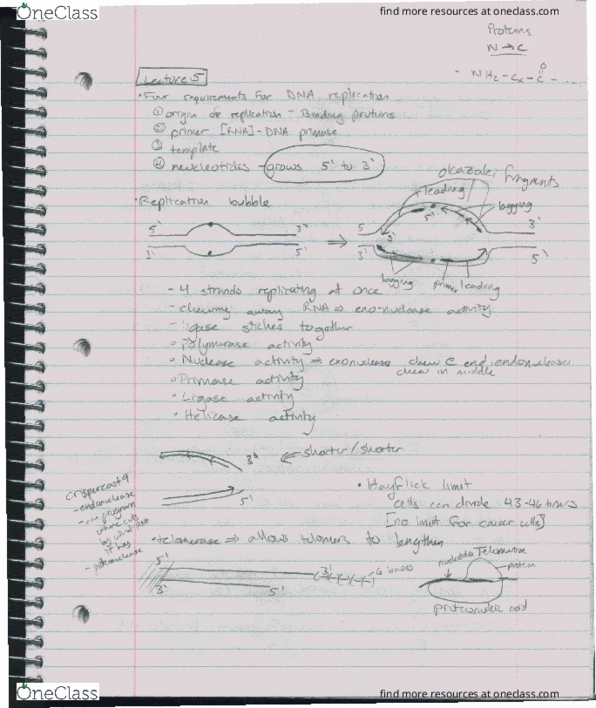 OneClass
find more resources at oneclass.com
Proteins
N → C
- NH2 - Cx - C - ...
O
Lecture 5
• Four requirements for DNA replication
① origin of replication - Binding proteins
② primer [RNA] - DNA primase
③ template
④ neucleotides - grows 5' to 3'
Okazaki fragments
• Replication bubble
leading
lagging
5' 3'
3' 5'
5'
3'
3'
5'
lagging primer leading
- 4 strands replicating at once
- chewing away RNA ⇒ exo-nuclease activity
- ligase stiches together
• Polymerase activity
• Nuclease activity ⇒ exonuclease chew @ end, endonuclease
chew in middle
• Primase activity
• Ligase activity
• Helicase activity
3' ← shorter/shorter
5'
crispr cas 9
- endonuclease
- can program
where cuts
by what RNA
it has
• Hayflick limit
cells can divide 43-46 times
[no limit for cancer cells]
• telomerase ⇒ allows telomers to lengthen
5' 3' 6 bases
3' 5'
nucleotides Telomerase
protein
OneClass
find more resources at oneclass.com